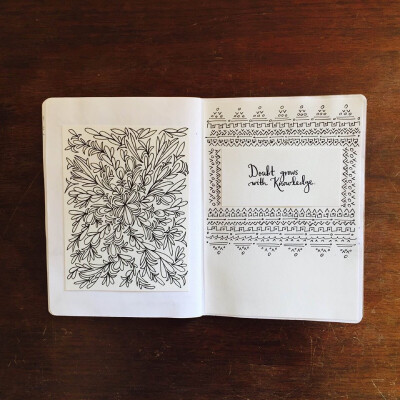 Doubt grows
with Knowledge